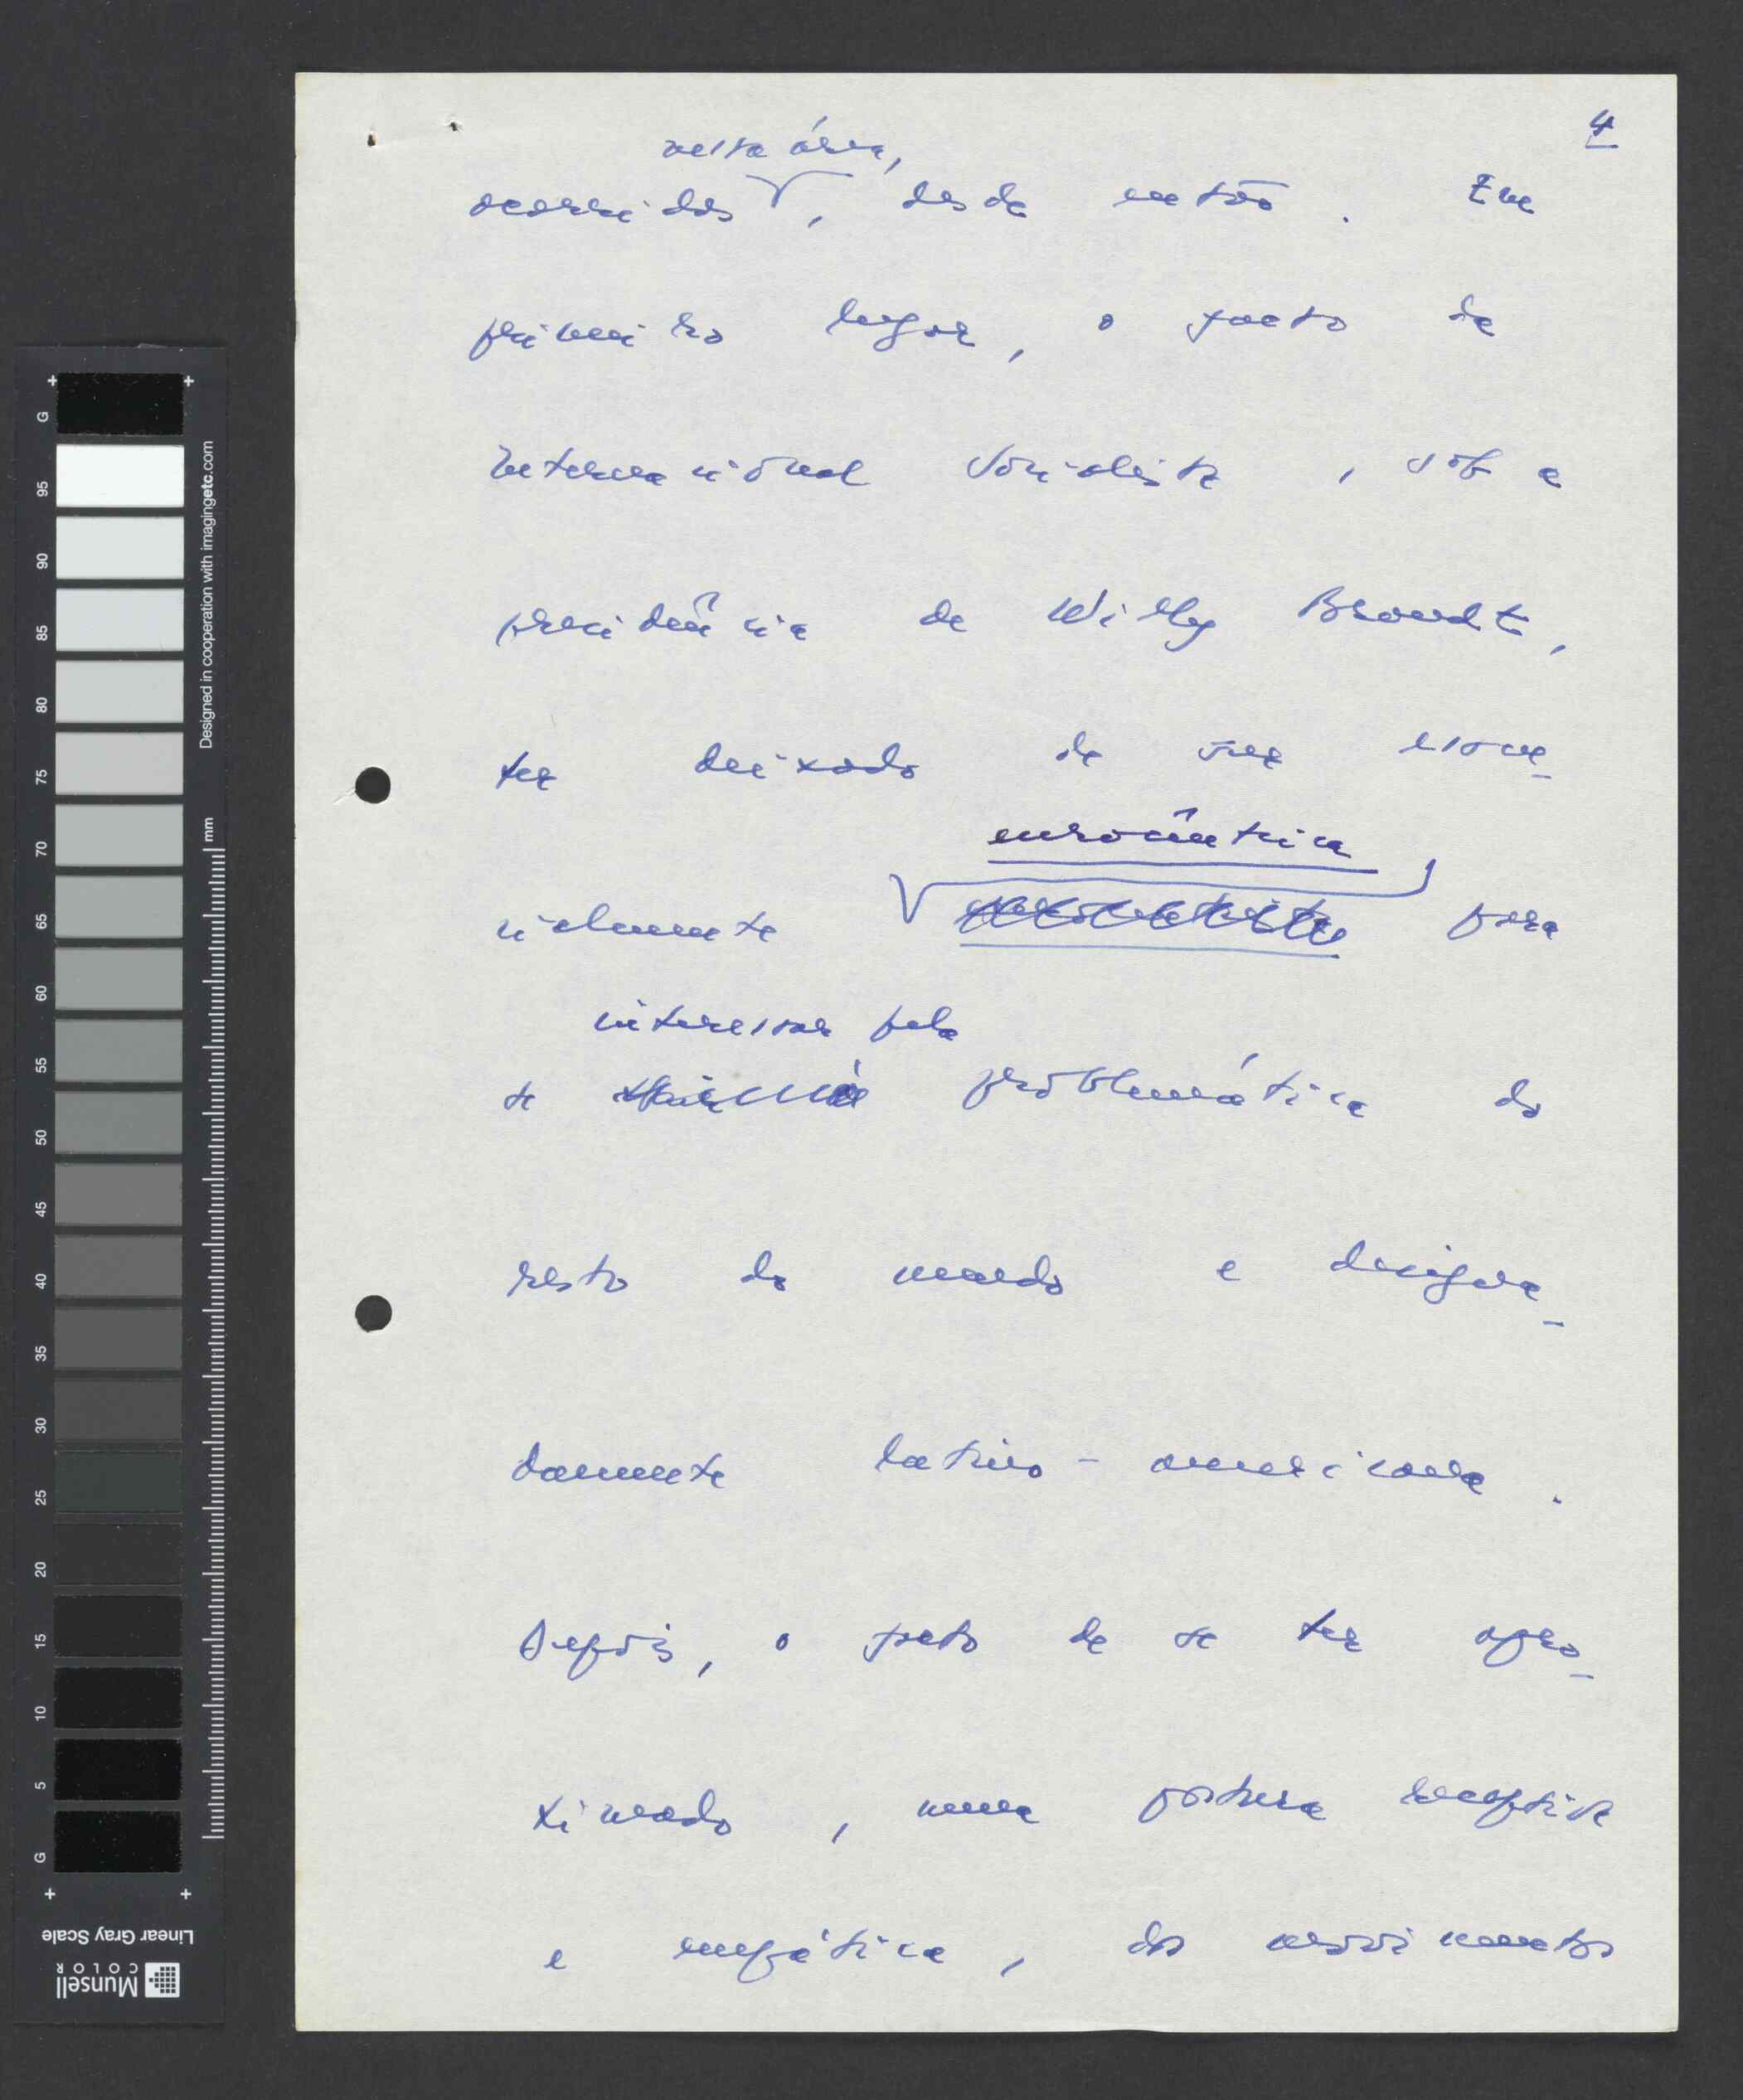 4
nessa área,
ocorridos, desde então. Em
primeiro lugar, o facto da
Internacional Socialista, sob a
presidência de Willy Brandt,
ter deixado de ser essen-
eurocêntrica
cialmente para
interessar pela
se problemática do
resto do mundo e designa-
damente latino-americana.
Depois, o facto de se ter apro-
ximado, numa postura receptiva
e empática, dos movimentos
G
95
90
85
80
75
70
65
60
55
50
45
40
35
30
25
20
15
10
5
G
Designed in cooperation with imagingetc.com
mm
Linear Gray Scale
Munsell
COLOR